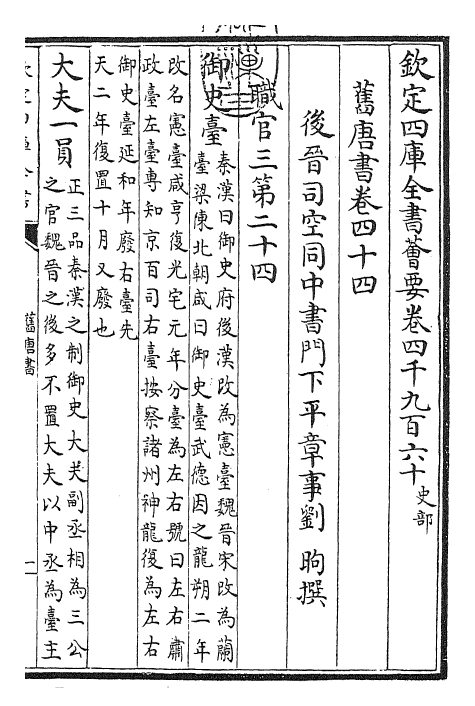 欽定四庫全書薈要卷四千九百六十 史部
舊唐書卷四十四
後晉司空同中書門下平章事劉 昫撰
職官三第二十四
御史臺
秦漢曰御史府後漢改為憲臺魏晉宋改為蘭
臺梁陳北朝咸曰御史臺武德因之龍朔二年
改名憲臺咸亨復光宅元年分臺為左右號曰左右肅
政臺左臺專知京百司右臺按察諸州神龍復為左右
御史臺延和年廢右臺先
天二年復置十月又廢也
大夫一員
正三品秦漢之制御史大夫副丞相為三公
之官魏晉之後多不置大夫以中丞為臺主
舊唐書
一